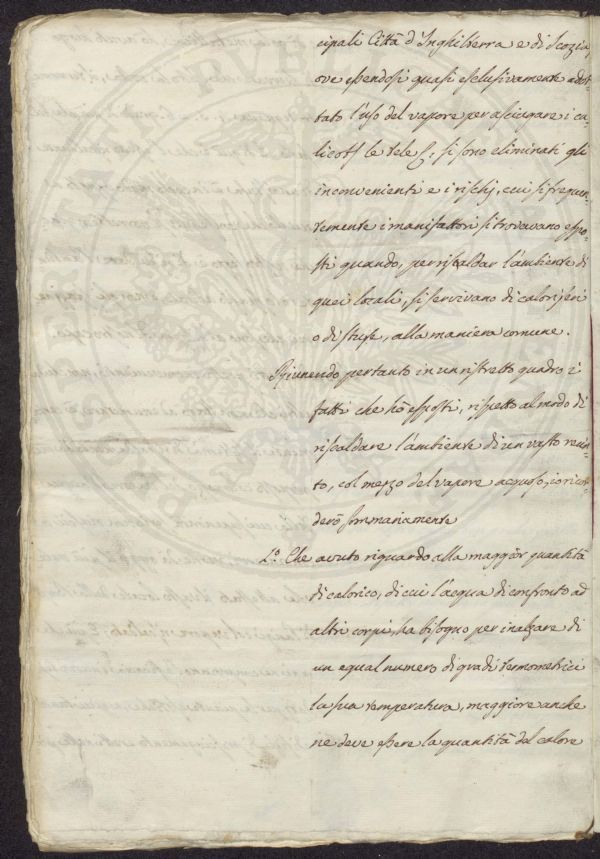 cipali Città d'Inghilterra e di Scozia,
ove essendosi quasi esclusivamente adot-
tato l'uso del vapore per asciugare i ca-
licots le tele &c: si sono eliminati gli
inconvenienti e i rischj, cui si frequen-
temente i manifattori si trovavano espo-
sti quando, per riscaldar l'ambiente di
quei locali, si servivano di caloriferi
o di stufe, alla maniera comune.
Riunendo pertanto in un ristretto quadro i
fatti che hò esposti, rispetto al modo di
riscaldare l'ambiente di un vasto recin-
to, col mezzo del vapore acquoso, io ricor-
derò sommariamente
1.º Che avuto riguardo alla maggior quantità
di calorico, di cui l'acqua di confronto ad
altri corpi, ha bisogno per inalzare di
un egual numero di gradi termometrici
la sua temperatura, maggiore anche
ne deve essere la quantità del calore